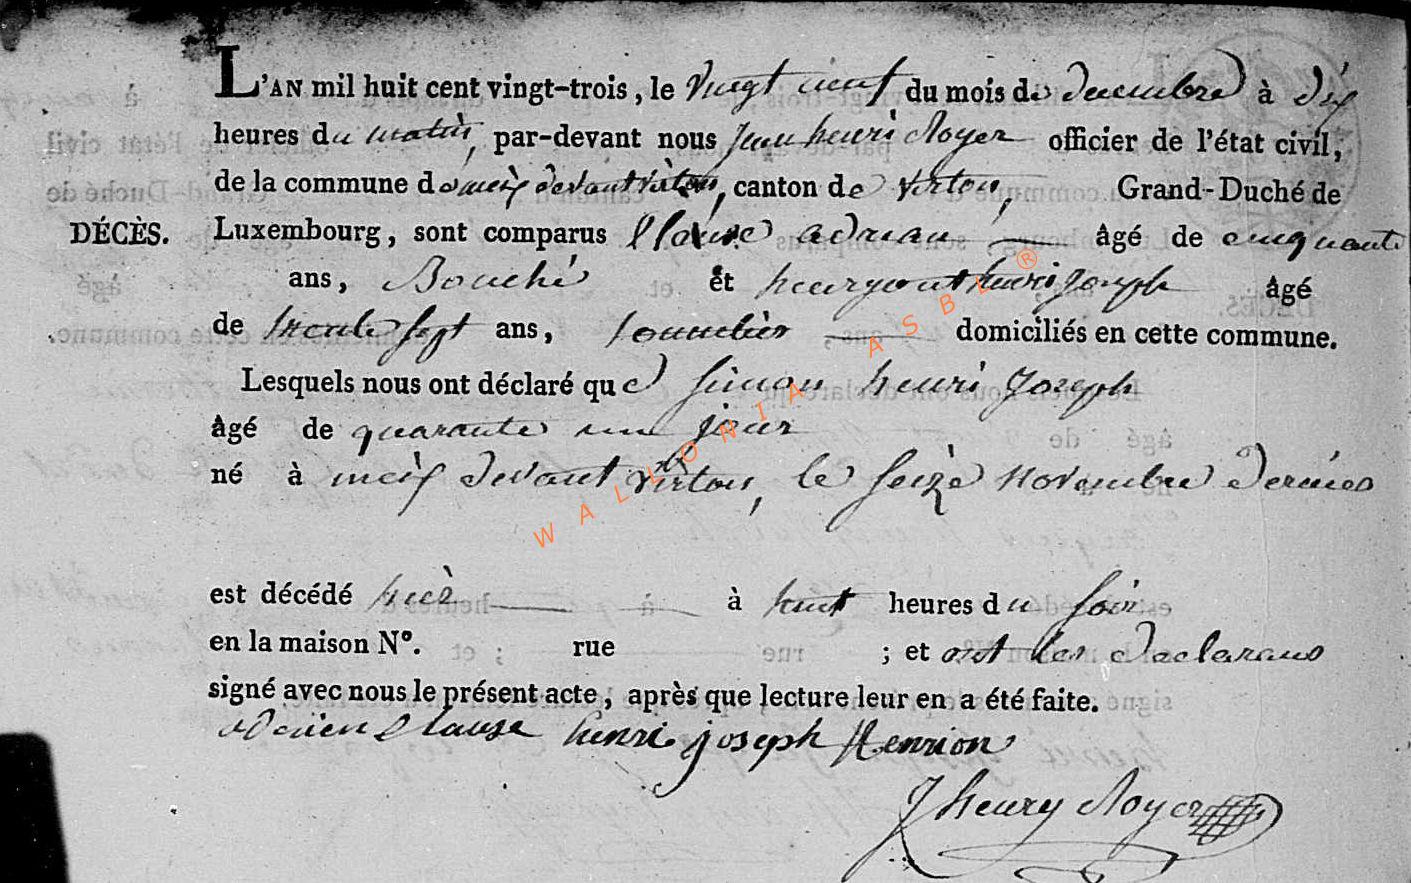 L'AN mil huit cent vingt-trois, le vingt neuf du mois de decembre à dix
heures du matin, par-devant nous jean henri Noyer officier de l'état civil,
de la commune de meix devant virton, canton de virton, Grand-Duché de
DÉCÈS. Luxembourg, sont comparus adrian âgé de cinquante
ans, Bouché et henri joseph âgé
de trente sept ans, domiciliés en cette commune.
Lesquels nous ont déclaré que Simon henri Joseph
âgé de quarante un jour
né à meix devant virton, le seize novembre dernier
est décédé hier à huit heures du soir
en la maison N°. rue ; et ont les declarans
signé avec nous le présent acte, après que lecture leur en a été faite.
henri joseph Henrion
J henry Noyer
WALLONIA ASBL ®